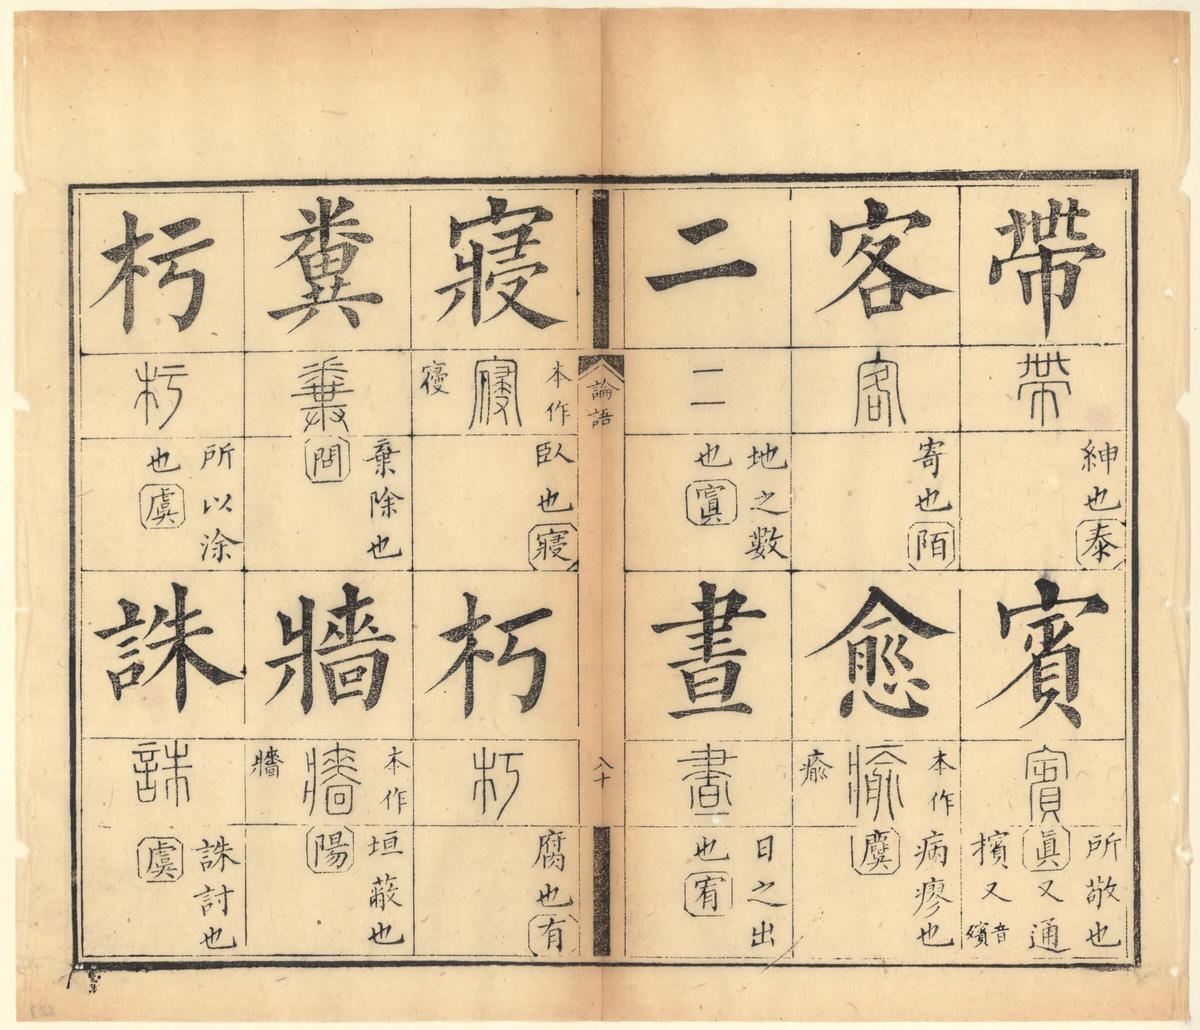 帶
帶
紳也
泰
賓
賓
所敬也
眞又通
擯又音殯
客
客
寄也
陌
愈
本作
瘉
瘉
病瘳也
麌
二
二
地之數
也
寘
晝
晝
日之出
也
宥
論語
八十
寢
本作
寢
臥也
寢
朽
朽
腐也
有
糞
糞
棄除也
問
牆
本作
牆
牆
垣蔽也
陽
杇
杇
所以涂
也
虞
誅
誅
誅討也
虞